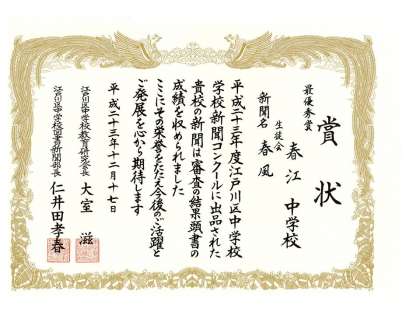 賞状
最優秀賞
春江中学校
生徒会
新聞名 春風
平成二十三年度江戸川区中学校
学校新聞コンクールに出品された
貴校の新聞は審査の結果頭書の
成績を収められました
ここにその栄誉をたたえ今後のご活躍と
ご発展を心から期待します
平成二十三年十二月十七日
江戸川区中学校教育研究会長 大室 滋
江戸川区中学校図書新聞部長 仁井田孝春